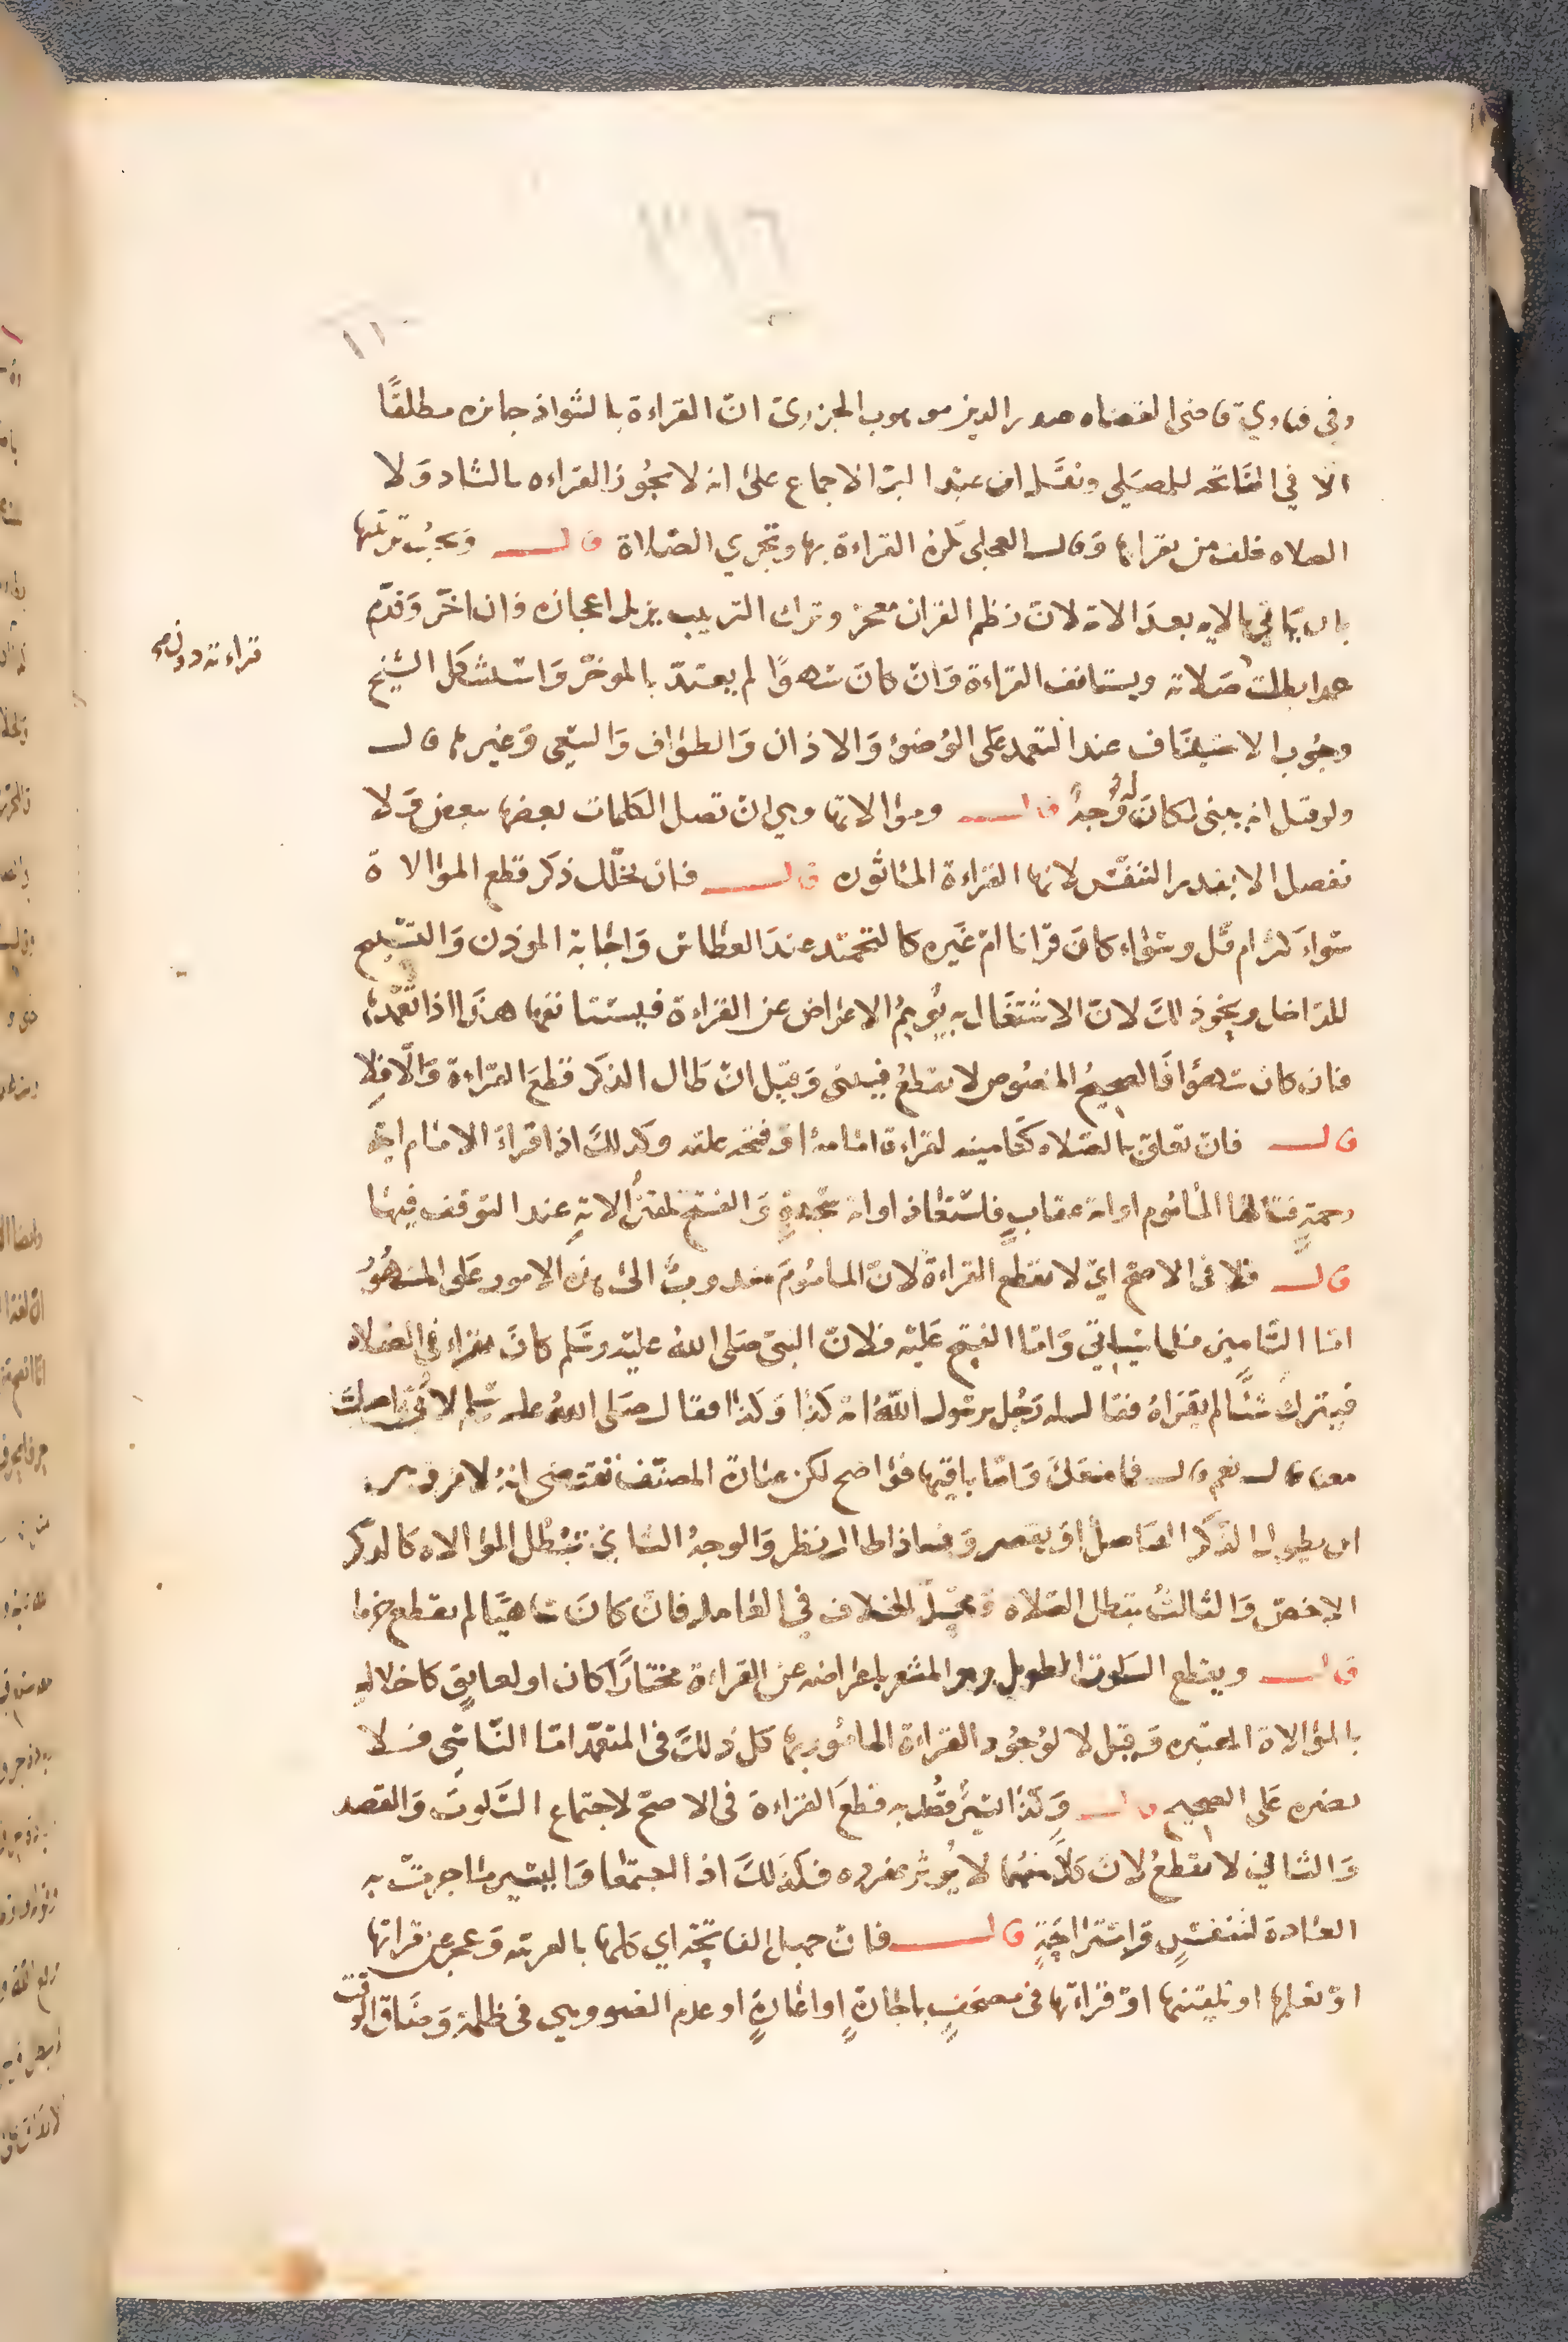 ١١
وفي فتاوي قاضى القضاه صدر الدين موهوب الجزري ان القراءة بالشواذ جائزه مطلقًا
الا في الفاتحه للمصلي ونقل ابن عبد البر الاجماع على انه لا يجوز القراءه بالشاد ولا
الصلاه خلف من يقرا بها وقال العجلى تكره القراءة بها وتجزي الصلاة قال ويجب ترتيبها
بان ياتي بالايه بعد الاية لان نظم القران معجز وترك الترتيب يزيل اعجازه فان اخر وقدم
عمدا بطلت صلاته ويستانف القراءة وان كان سهوًا لم يعتد بالموخر واستشكل الشيخ
قراءته دون
وجوب الاستيناف عند التعمد على الوضوء والاذان والطواف والسعي وغيرها قال
ولو قيل انه يبنى لكان له وجهً قال وموالاتها وهي ان تصل الكلمات بعضها ببعض ولا
تفصل الا بقدر التنفس لانها القراءة الماثوره قال فان تخلل ذكر قطع الموالاة
سواء كثر ام قل وسواء كان قرانا ام غيره كالتحميد عند العطاس واجابة الموذن والتسبيح
للداخل ونحو ذلك لان الاشتغال به يوهم الاعراض عن القراءة فيستانفها هذا اذا تعمد
فان كان سهوًا فالصحيح المنصوص لا يقطع فيبنى وقيل ان طال الذكر قطع القراءة والا فلا
قال فان تعلق بالصلاه كتامينه لقراءة امامه او فتحه عليه وكذلك اذا قراء الامام اية
رحمةٍ فسالها الماموم او اية عقابٍ فاستعاذ او اية سجدةٍ والفتح تلقين الاية عند التوقف فيها
قال فلا فى الاصح اي لا يقطع القراءة لان الماموم مندوبٌ الى هذه الامور على المشهور
اما التامين فلما سياتي واما الفتح عليه فلان النبى صلى الله عليه وسلم كان يقراء في الصلاه
فيترك شيًا لم يقراه فقال له رجل يرسول الله اية كذا وكذا فقال صلى الله عليه سلم لابي اصليت
معنا قال نعم قال فما منعك واما باقيها فواضح لكن عبارة المصنف تقتضى انه لا فرق بين
ان يطول الذكر الفاصل او يقصر وفيما اذا طال نظر والوجه الثاني تبطل الموالاه كالذكر
الاخص والثالث تبطل الصلاه ومحل الخلاف في العامد فان كان ساهيًا لم يقطع جزما
قال ويقطع السكوت الطويل وهو المشعر باعراضه عن القراءة مختارًا كان او لعايق كاخلاله
بالموالاة المعتبره وقيل لا لوجود القراءة المامور بها كل ذلك فى المتعمد اما الناسي فلا
يضره على الصحيح قال وكذا يسيرٌ قصد به قطع القراءة فى الاصح لاجتماع السكوت والقصد
والثاني لا يقطع لان كلاً منهما لا يوثر بمفرده فكذلك اذا اجتمعا واليسير ما جرت به
العادة لتنفسٍ واستراحةٍ قال فان جهل الفاتحة اي كلها بالعربيه وعجز عن قراتها
او تعلمها او تلقينها او قراءتها فى مصحفٍ باجارةٍ او اعارةٍ او عدم الضوء وهي فى ظلمة وضاق الوقت